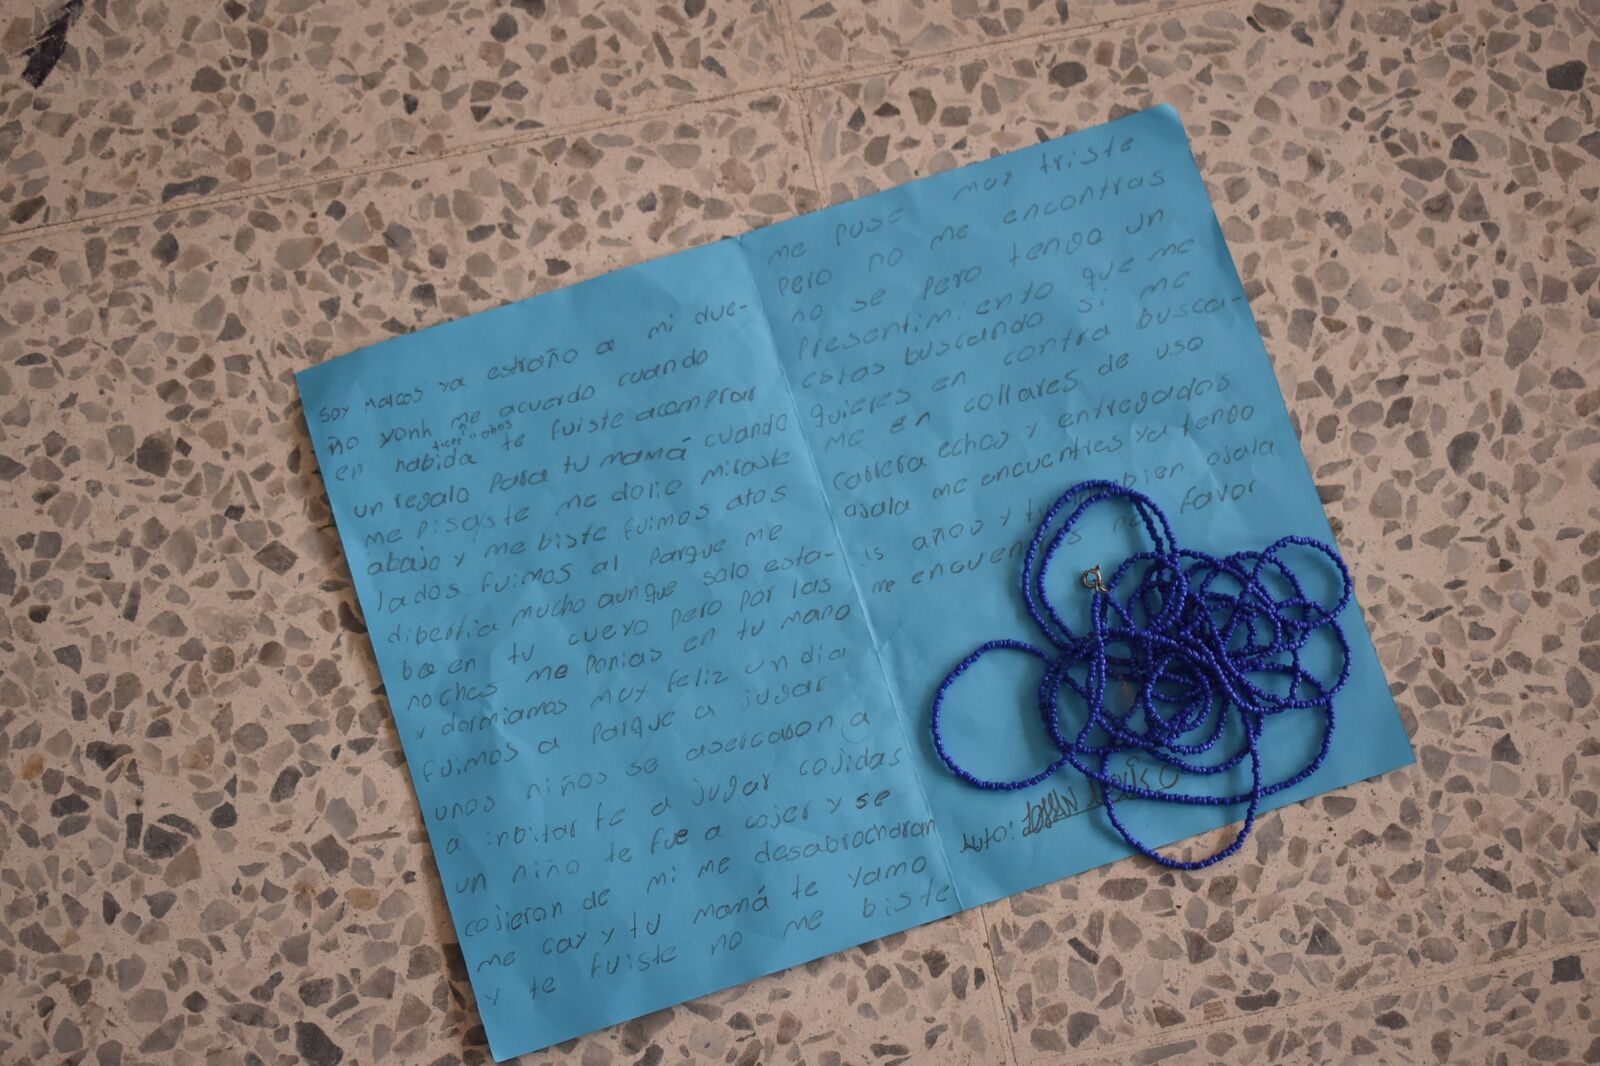 soy Marcos ya estraño a mi due-
ño yonh me acuerdo cuando
tiene 11 años
en nabida te fuiste acomprar
un regalo para tu mamá cuando
me pisaste me dolio miraste
abajo y me biste fuimos atos
lados fuimos al parque me
dibertia mucho aunque solo esta-
ba en tu cueyo pero por las
noches me ponias en tu mano
y dormiamos muy feliz un dia
fuimos a parque a jugar
unos niños se asercaron a
a inbitarte a jugar cojidas
un niño te fue a cojer y se
cojieron de mi me desabrocharan
me cay y tu mamá te yamo
y te fuiste no me biste
me puse muy triste
pero no me encontras
no se pero tengo un
presentimiento que me
estas buscando si me
quieres en contra busca-
me en collares de uso
carrera echos y entregados
ojala me encuentres ya tengo
15 años y tu bien ojala
me encuentres favor
Auto: